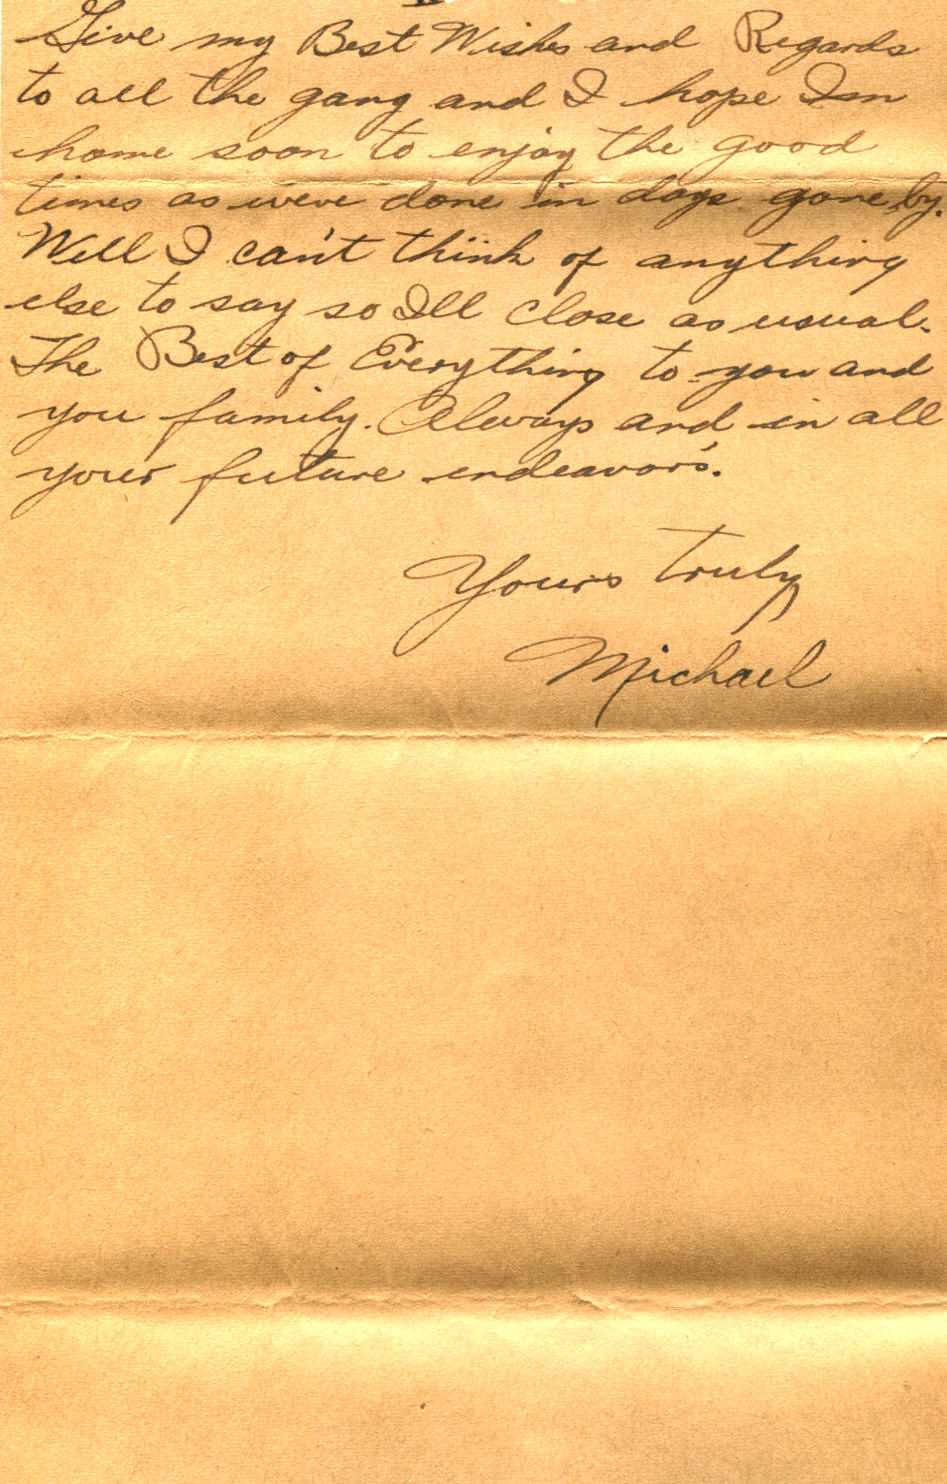 Give my Best Wishes and Regards
to all the gang and I hope Im
home soon to enjoy the good
times as were done in days gone by.
Well I can't think of anything
else to say so Ill close as usual.
The Best of Everything to you and
you family. Always and in all
your future endeavors.
Yours truly
Michael